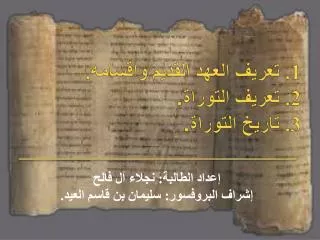 1. تعريف العهد القديم وأقسامه.
2. تعريف التوراة.
3. تاريخ التوراة.
إعداد الطالبة: نجلاء آل فالح
إشراف البروفسور: سليمان بن قاسم العيد.